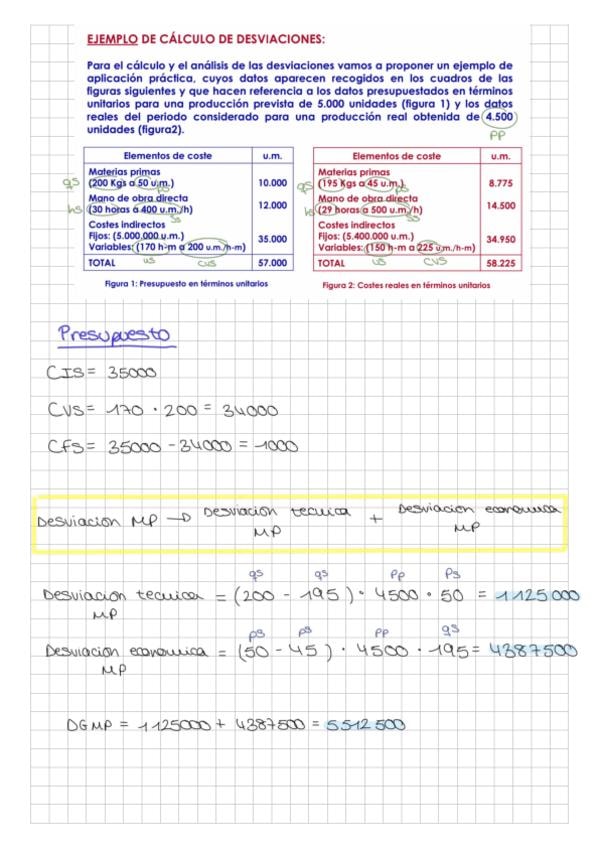 EJEMPLO DE CÁLCULO DE DESVIACIONES:
Para el cálculo y el análisis de las desviaciones vamos a proponer un ejemplo de
aplicación práctica, cuyos datos aparecen recogidos en los cuadros de las
figuras siguientes y que hacen referencia a los datos presupuestados en términos
unitarios para una producción prevista de 5.000 unidades (figura 1) y los datos
reales del periodo considerado para una producción real obtenida de 4.500
unidades (figura2).
PP
Elementos de coste u.m.
Materias primas
qs (200 Kgs a 50 u.m.) 10.000
ps
Mano de obra directa
hs (30 horas a 400 u.m./h) 12.000
ss
Costes indirectos
Fijos: (5.000.000 u.m.)
Variables: (170 h-m a 200 u.m./h-m) 35.000
TOTAL 57.000
us cvs
Figura 1: Presupuesto en términos unitarios
Elementos de coste u.m.
Materias primas
qs (195 Kgs a 45 u.m.) 8.775
ps
Mano de obra directa
hs (29 horas a 500 u.m./h) 14.500
ss
Costes indirectos
Fijos: (5.400.000 u.m.)
Variables: (150 h-m a 225 u.m./h-m) 34.950
TOTAL 58.225
us cvs
Figura 2: Costes reales en términos unitarios
Presupuesto
CIS = 35000
CVS = 170 · 200 = 34000
CFS = 35000 - 34000 = 1000
Desviación MP → Desviación tecnica MP + Desviación economica MP
qs qs PP Ps
Desviación tecnica MP = (200 - 195) · 4500 · 50 = 1125000
ps ps PP qs
Desviación economica MP = (50 - 45) · 4500 · 195 = 4387500
DGMP = 1125000 + 4387500 = 5512500